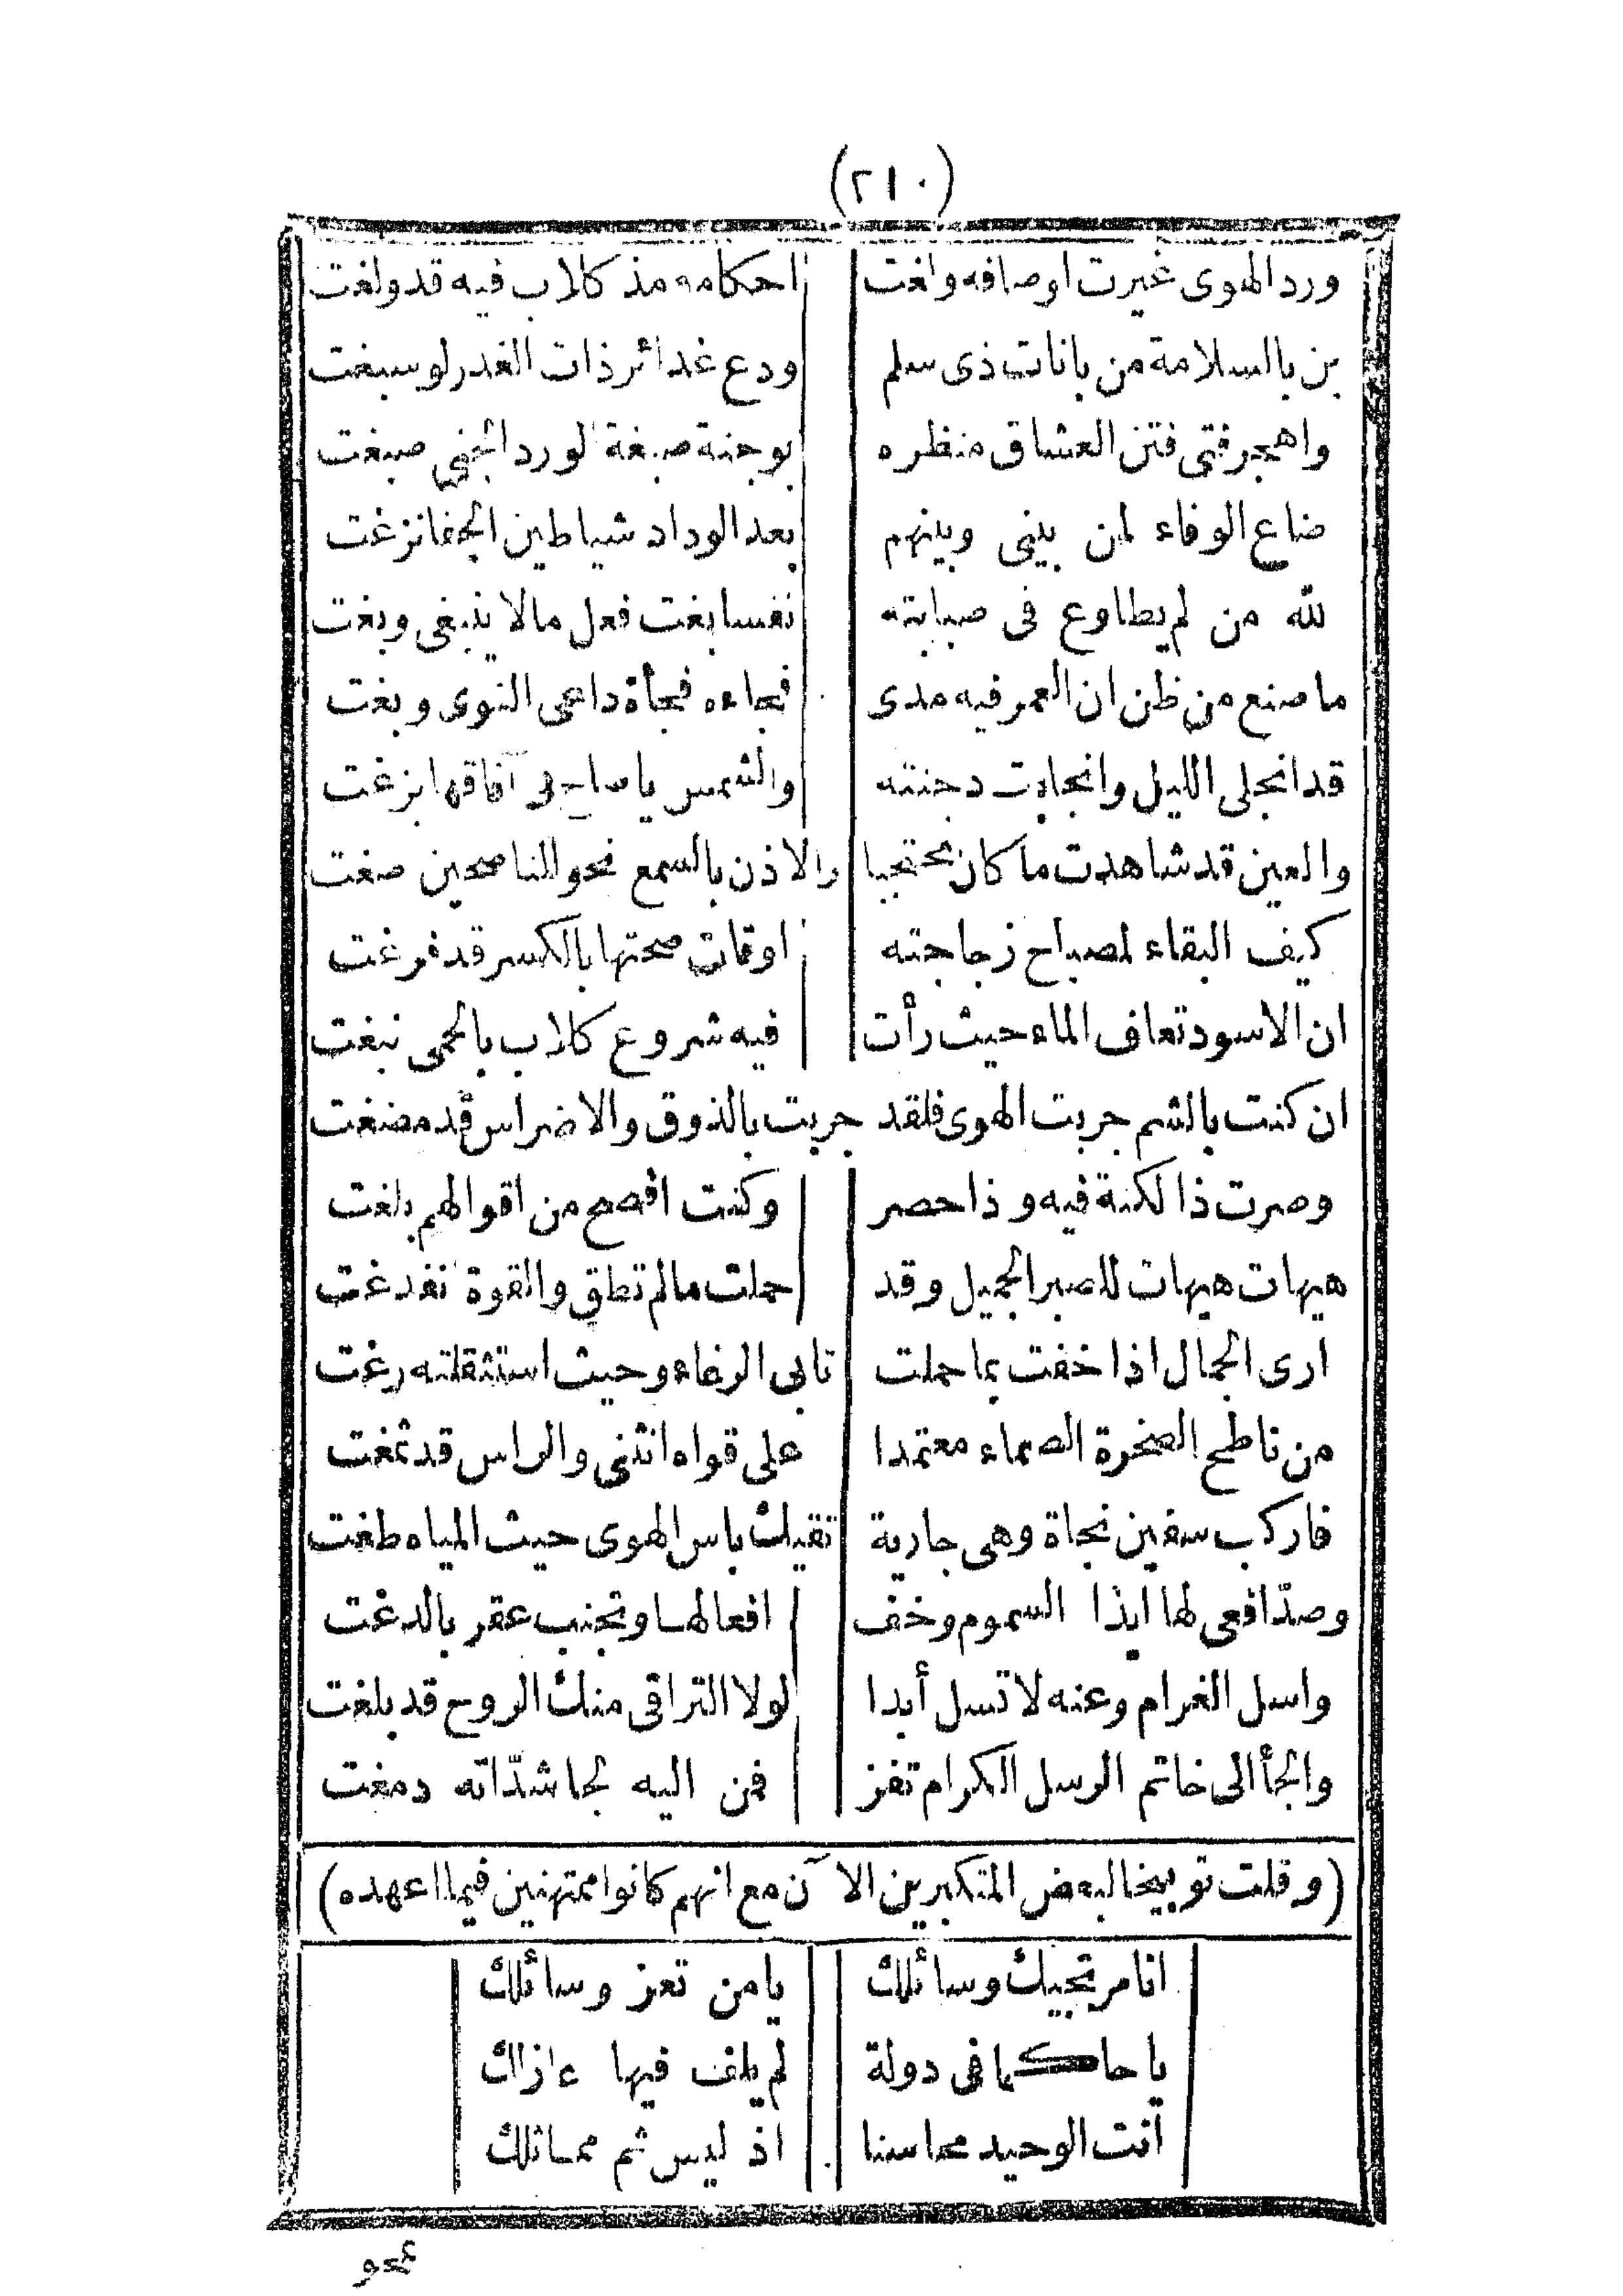 (٢١٠)
ورد الهوى غيرت اوصافه والغت احكامه مذ كلاب فيه قد ولغت
بن بالسلامة من بانات ذى سلم ودع غدائر ذات الغدر لو سبغت
واهجر فتى فتن العشاق منظره بوجنة صبغة الورد الجنى صبغت
ضاع الوفاء لمن بينى وبينهم بعد الوداد شياطين الجفا نزغت
لله من لم يطاوع فى صبابته نفسا بغت فعل مالا ينبغى وبغت
ما صنع من ظن ان العمر فيه مدى فجاءه فجأة داعى النوى وبغت
قد انجلى الليل وانجابت دجنته والشمس يا صاح فى آفاقها بزغت
والعين قد شاهدت ما كان محتجبا والاذن بالسمع نحو الناصحين صغت
كيف البقاء لمصباح زجاجته اوقات صحتها بالكسر قد فرغت
ان الاسود تعاف الماء حيث رأت فيه شروع كلاب بالحمى نبغت
ان كنت بالشم جربت الهوى فلقد جربت بالذوق والاضراس قد مضغت
وصرت ذا لكنة فيه وذا حصر وكنت افصح من اقوالهم بلغت
هيهات هيهات للصبر الجميل وقد حملت مالم تطق والقوة نفدغت
ارى الجمال اذا خفت بما حملت تابى الرغاء وحيث استثقلته رغت
من ناطح الصخرة الصماء معتمدا على قواه انثنى والراس قد ثمغت
فاركب سفين نجاة وهى جارية تقيك باس الهوى حيث المياه طغت
وصدّ افعى لها ايذا السموم وخف افعالها وتجنب عقربا لدغت
واسل الغرام وعنه لا تسل أبدا لولا التراقى منك الروح قد بلغت
والجأ الى خاتم الرسل الكرام تفز فمن اليه لجا شدّاته دمغت
(وقلت توبيخا لبعض المتكبرين الآن مع انهم كانوا ممتهنين فيما اعهده)
انا مرتجيك وسائلك يا من تعز وسائلك
يا حاكما فى دولة لم يلف فيها عازلك
أنت الوحيد محاسنا اذ ليس ثم مماثلك